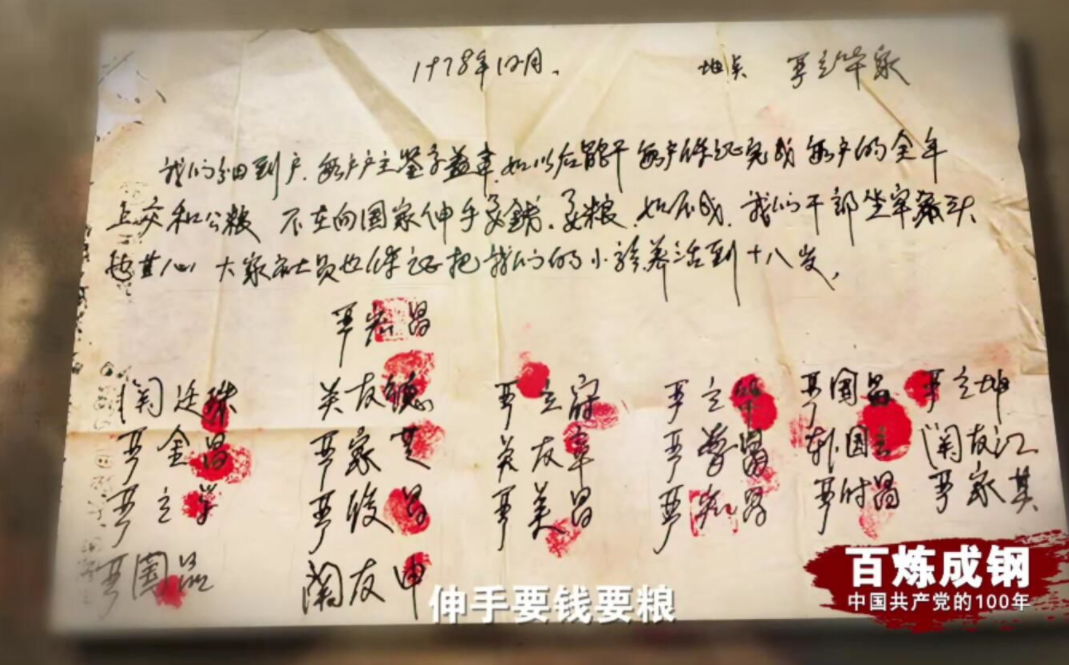 1978年12月、 地点 严立华家
我们分田到户.每户户主签字盖章.如以后能干每户保证完成每户的全年
上交和公粮 不在向国家伸手要钱.要粮.如不成.我们干部坐牢杀头
也甘心 大家社员也保证把我们的小孩养活到十八岁,
严宏昌
关廷珠 关友德 严立符 严立华 严国昌 严立坤
严金昌 严家芝 关友章 严学昌 韩国云 关友江
严立学 严俊昌 严美昌 严宏昌 严付昌 严家其
严国品 关友申
伸手要钱要粮
百炼成钢
中国共产党的100年